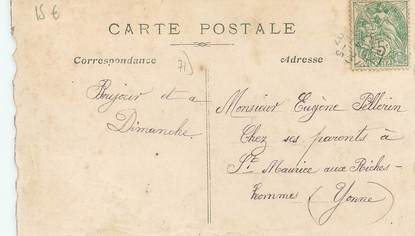 15 €
CARTE POSTALE
Correspondance
71
Adresse
Bonjour et a
Dimanche.
Monsieur Eugène Pellerin
Chez ses parents à
St Maurice aux Riches-
hommes (Yonne)
5c